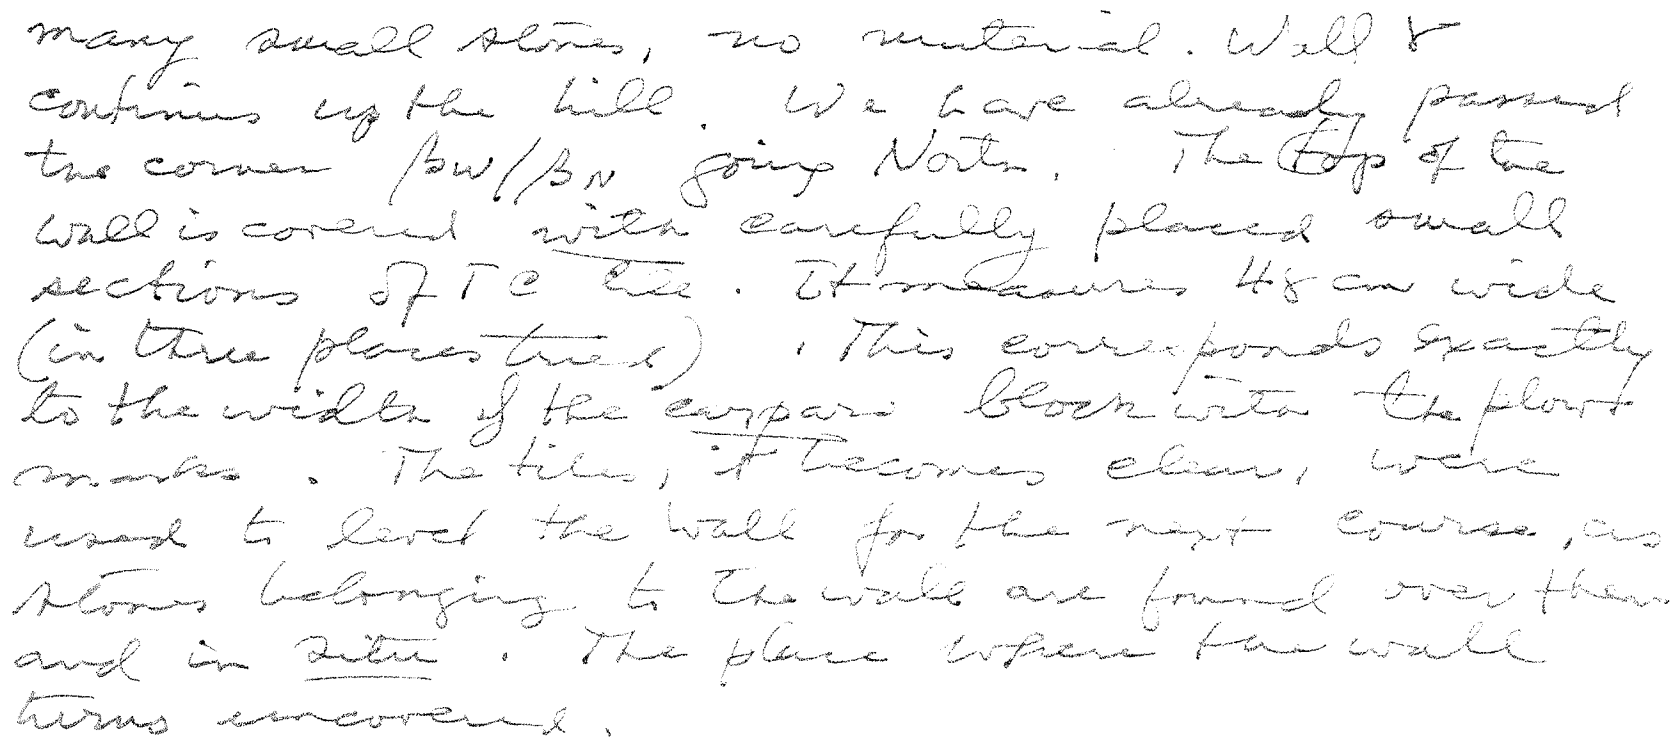 many small stones, no material. Wall 8
continues up the hill. We have already passed
the corner βW/βN going North. The top of the
wall is covered with carefully placed small
sections of TC tile. It measures 48 cm wide
(in three places tried). This corresponds exactly
to the width of the cappari block with the plow
marks. The tiles, it becomes clear, were
used to level the wall for the next course, as
stones belonging to the wall are found over them
and in situ. The place where the wall
turns uncovered.